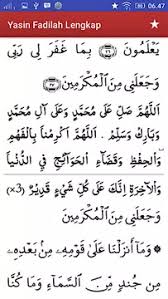 06.47
Yasin Fadilah Lengkap
يَعْلَمُوْنَ ۝٢٦ بِمَا غَفَرَ لِيْ رَبِّيْ
وَجَعَلَنِيْ مِنَ الْمُكْرَمِيْنَ ۝٢٧
اَللّٰهُمَّ صَلِّ عَلٰى مُحَمَّدٍ وَعَلٰى اٰلِ مُحَمَّدٍ
وَبَارِكْ وَسَلِّمْ ۰ اَللّٰهُمَّ اَكْرِمْنَا بِالْفَهْمِ
وَالْحِفْظِ وَقَضَاءِ الْحَوَائِجِ فِي الدُّنْيَا
وَالْاٰخِرَةِ اِنَّكَ عَلٰى كُلِّ شَيْءٍ قَدِيْرٌ (×3)
وَجَعَلَنِيْ مِنَ الْمُكْرَمِيْنَ
وَمَا اَنْزَلْنَا عَلٰى قَوْمِهٖ مِنْ بَعْدِهٖ
مِنْ جُنْدٍ مِّنَ السَّمَاءِ وَمَا كُنَّا